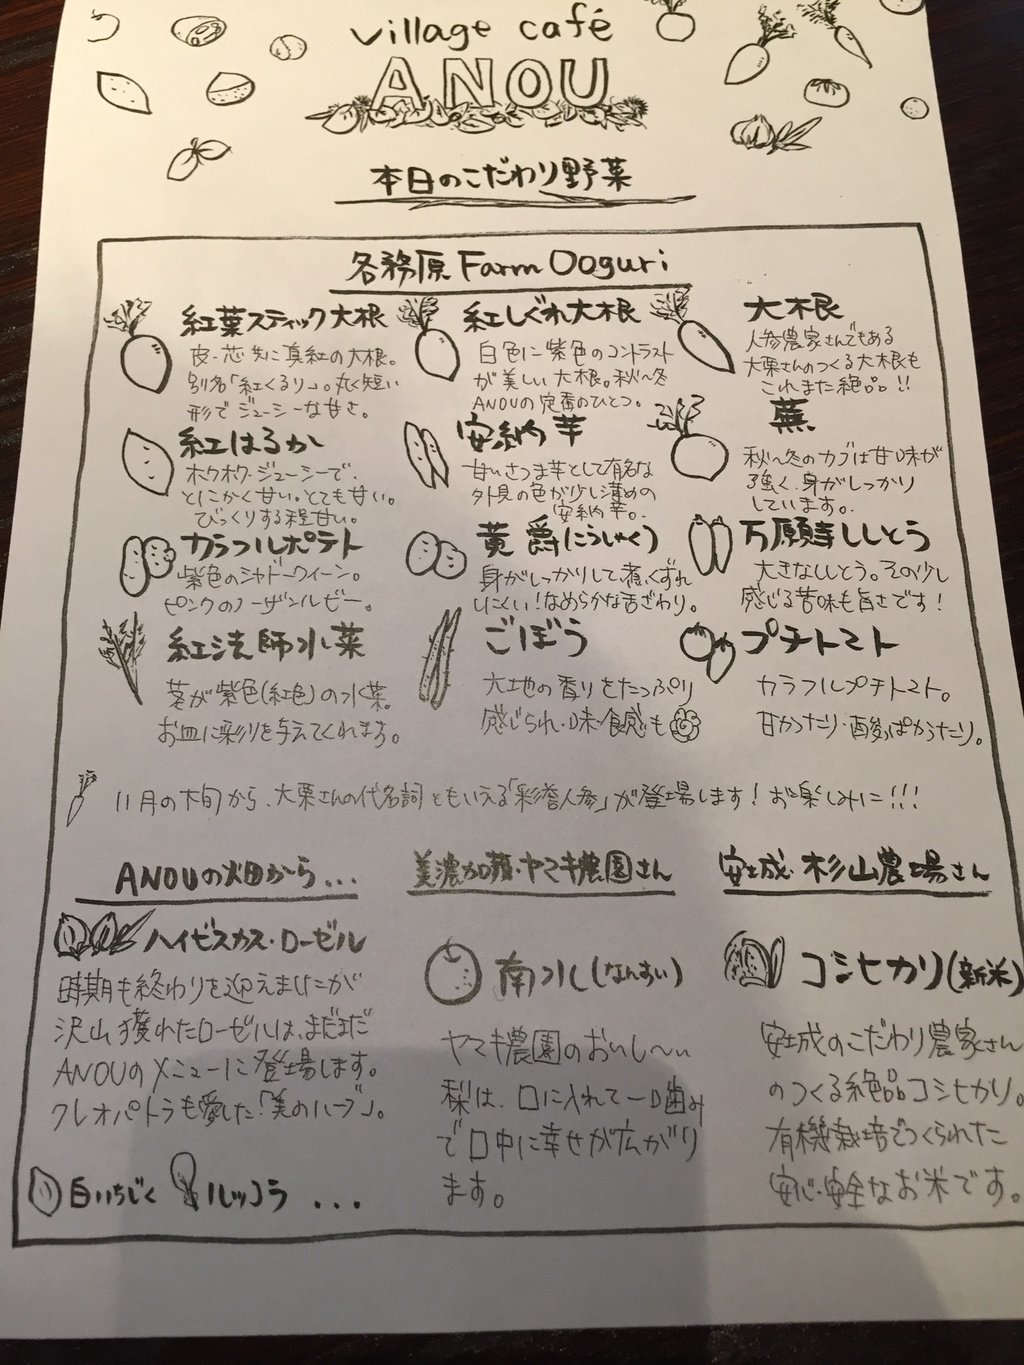 village café
ANOU
本日のこだわり野菜
各務原 Farm Ooguri
紅葉スティック大根
皮・芯共に真紅の大根。
別名「紅くるり」。丸く短い
形でジューシーな甘さ。
紅しぐれ大根
白色に紫色のコントラスト
が美しい大根。秋〜冬
ANOUの定番のひとつ。
大根
人参農家さんでもある
大栗さんのつくる大根も
これまた絶品!!
紅はるか
ホクホク・ジューシーで、
とにかく甘い。とても甘い。
びっくりする程甘い。
安納芋
甘いさつま芋として有名な
外見の色が少し薄めの
安納芋。
蕪
秋〜冬のカブは甘味が
強く、身がしっかり
しています。
カラフルポテト
紫色のシャドークィーン。
ピンクのノーザンルビー。
黄爵(こうしゃく)
身がしっかりして煮くずれ
しにくい!なめらかな舌ざわり。
万願寺ししとう
大きなししとう。その少し
感じる苦味も旨さです!
紅法師水菜
茎が紫色(紅色)の水菜。
お皿に彩りを与えてくれます。
ごぼう
大地の香りをたっぷり
感じられ・味・食感も
プチトマト
カラフルプチトマト。
甘かったり・酸っぱかったり。
11月の下旬から、大栗さんの代名詞ともいえる「彩誉人参」が登場します!お楽しみに!!!
ANOUの畑から...
ハイビスカス・ローゼル
時期も終わりを迎えましたが
沢山獲れたローゼルは、まだまだ
ANOUのメニューに登場します。
クレオパトラも愛した「美のハーブ」。
白いちじく ルッコラ ...
美濃加茂・ヤマキ農園さん
南水(なんすい)
ヤマキ農園のおいし〜い
梨は、口に入れて一口噛み
で口中に幸せが広がり
ます。
安城・杉山農場さん
コシヒカリ(新米)
安城のこだわり農家さん
のつくる絶品コシヒカリ。
有機栽培でつくられた
安心・安全なお米です。